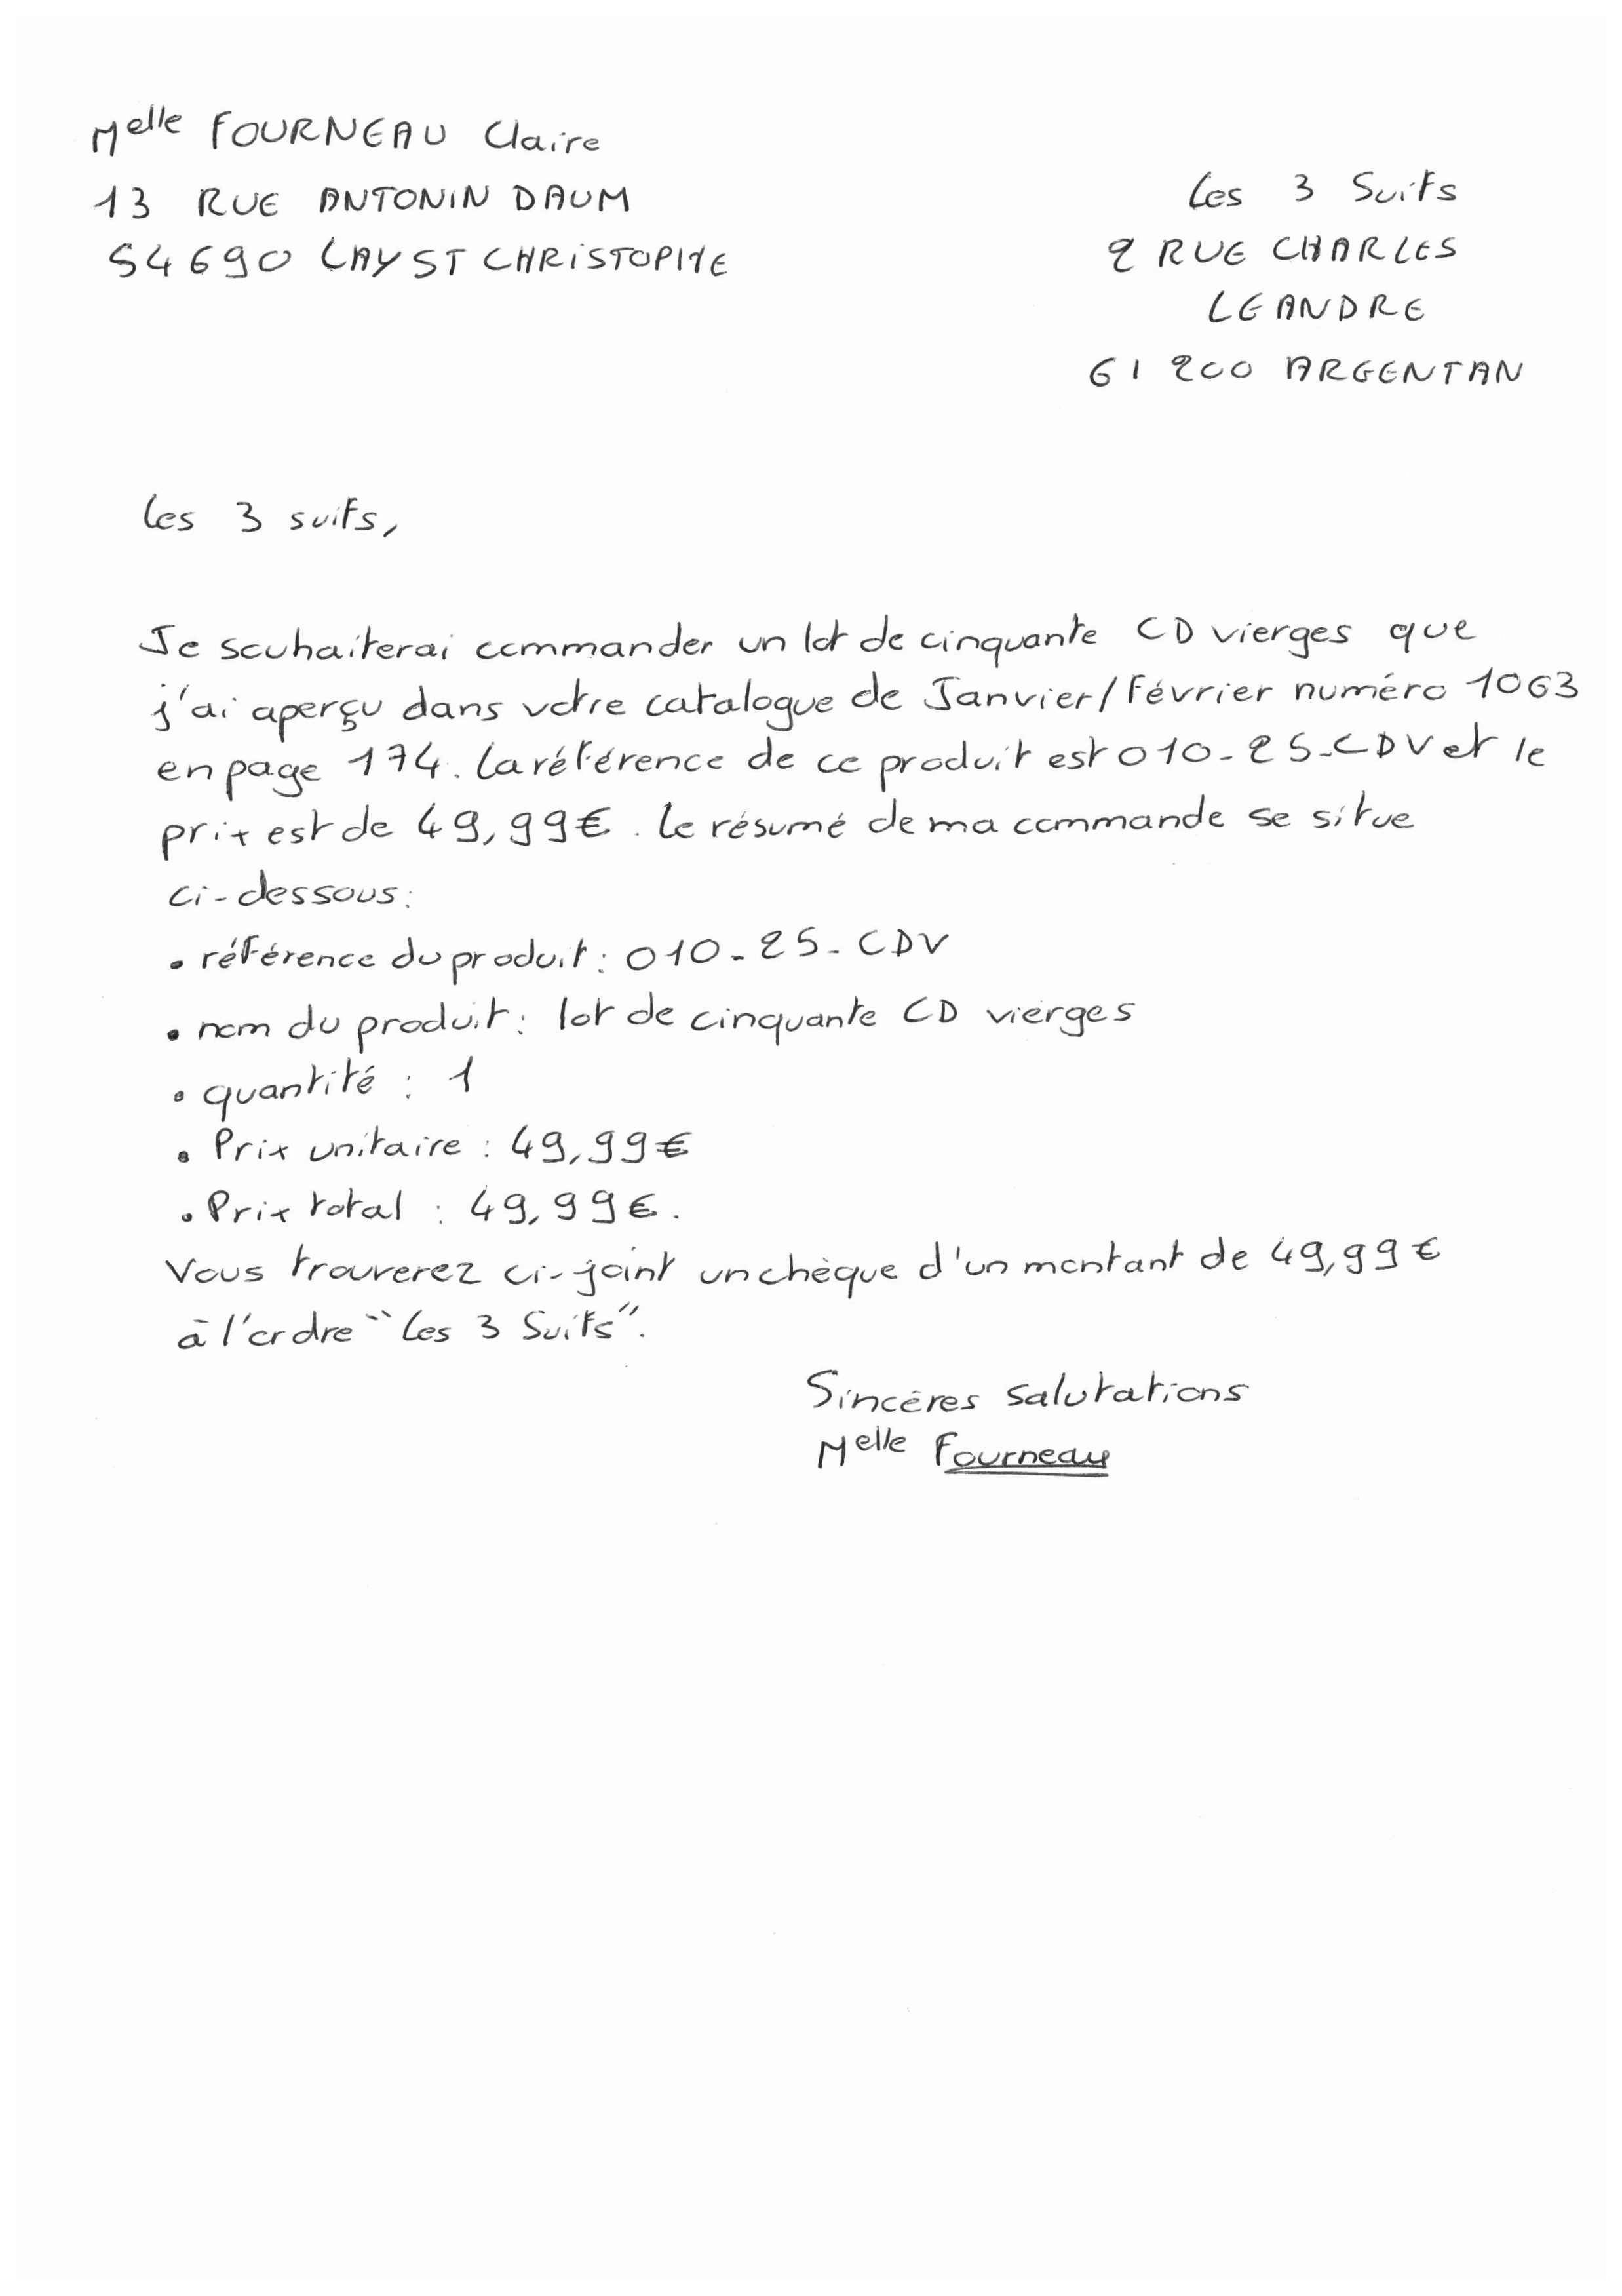 Melle FOURNEAU Claire
13 RUE ANTONIN DAUM
54690 LAY ST CHRISTOPHE
Les 3 Suits
2 RUE CHARLES
LEANDRE
61200 ARGENTAN
Les 3 suits,
Je souhaiterai commander un lot de cinquante CD vierges que
j'ai aperçu dans votre catalogue de Janvier/Février numéro 1063
en page 174. La référence de ce produit est 010-25-CDV et le
prix est de 49,99€. Le résumé de ma commande se situe
ci-dessous:
• référence du produit : 010-25-CDV
• nom du produit : lot de cinquante CD vierges
• quantité : 1
• Prix unitaire : 49,99€
• Prix total : 49,99€.
Vous trouverez ci-joint un chèque d'un montant de 49,99€
à l'ordre "Les 3 Suits".
Sincères salutations
Melle Fourneau